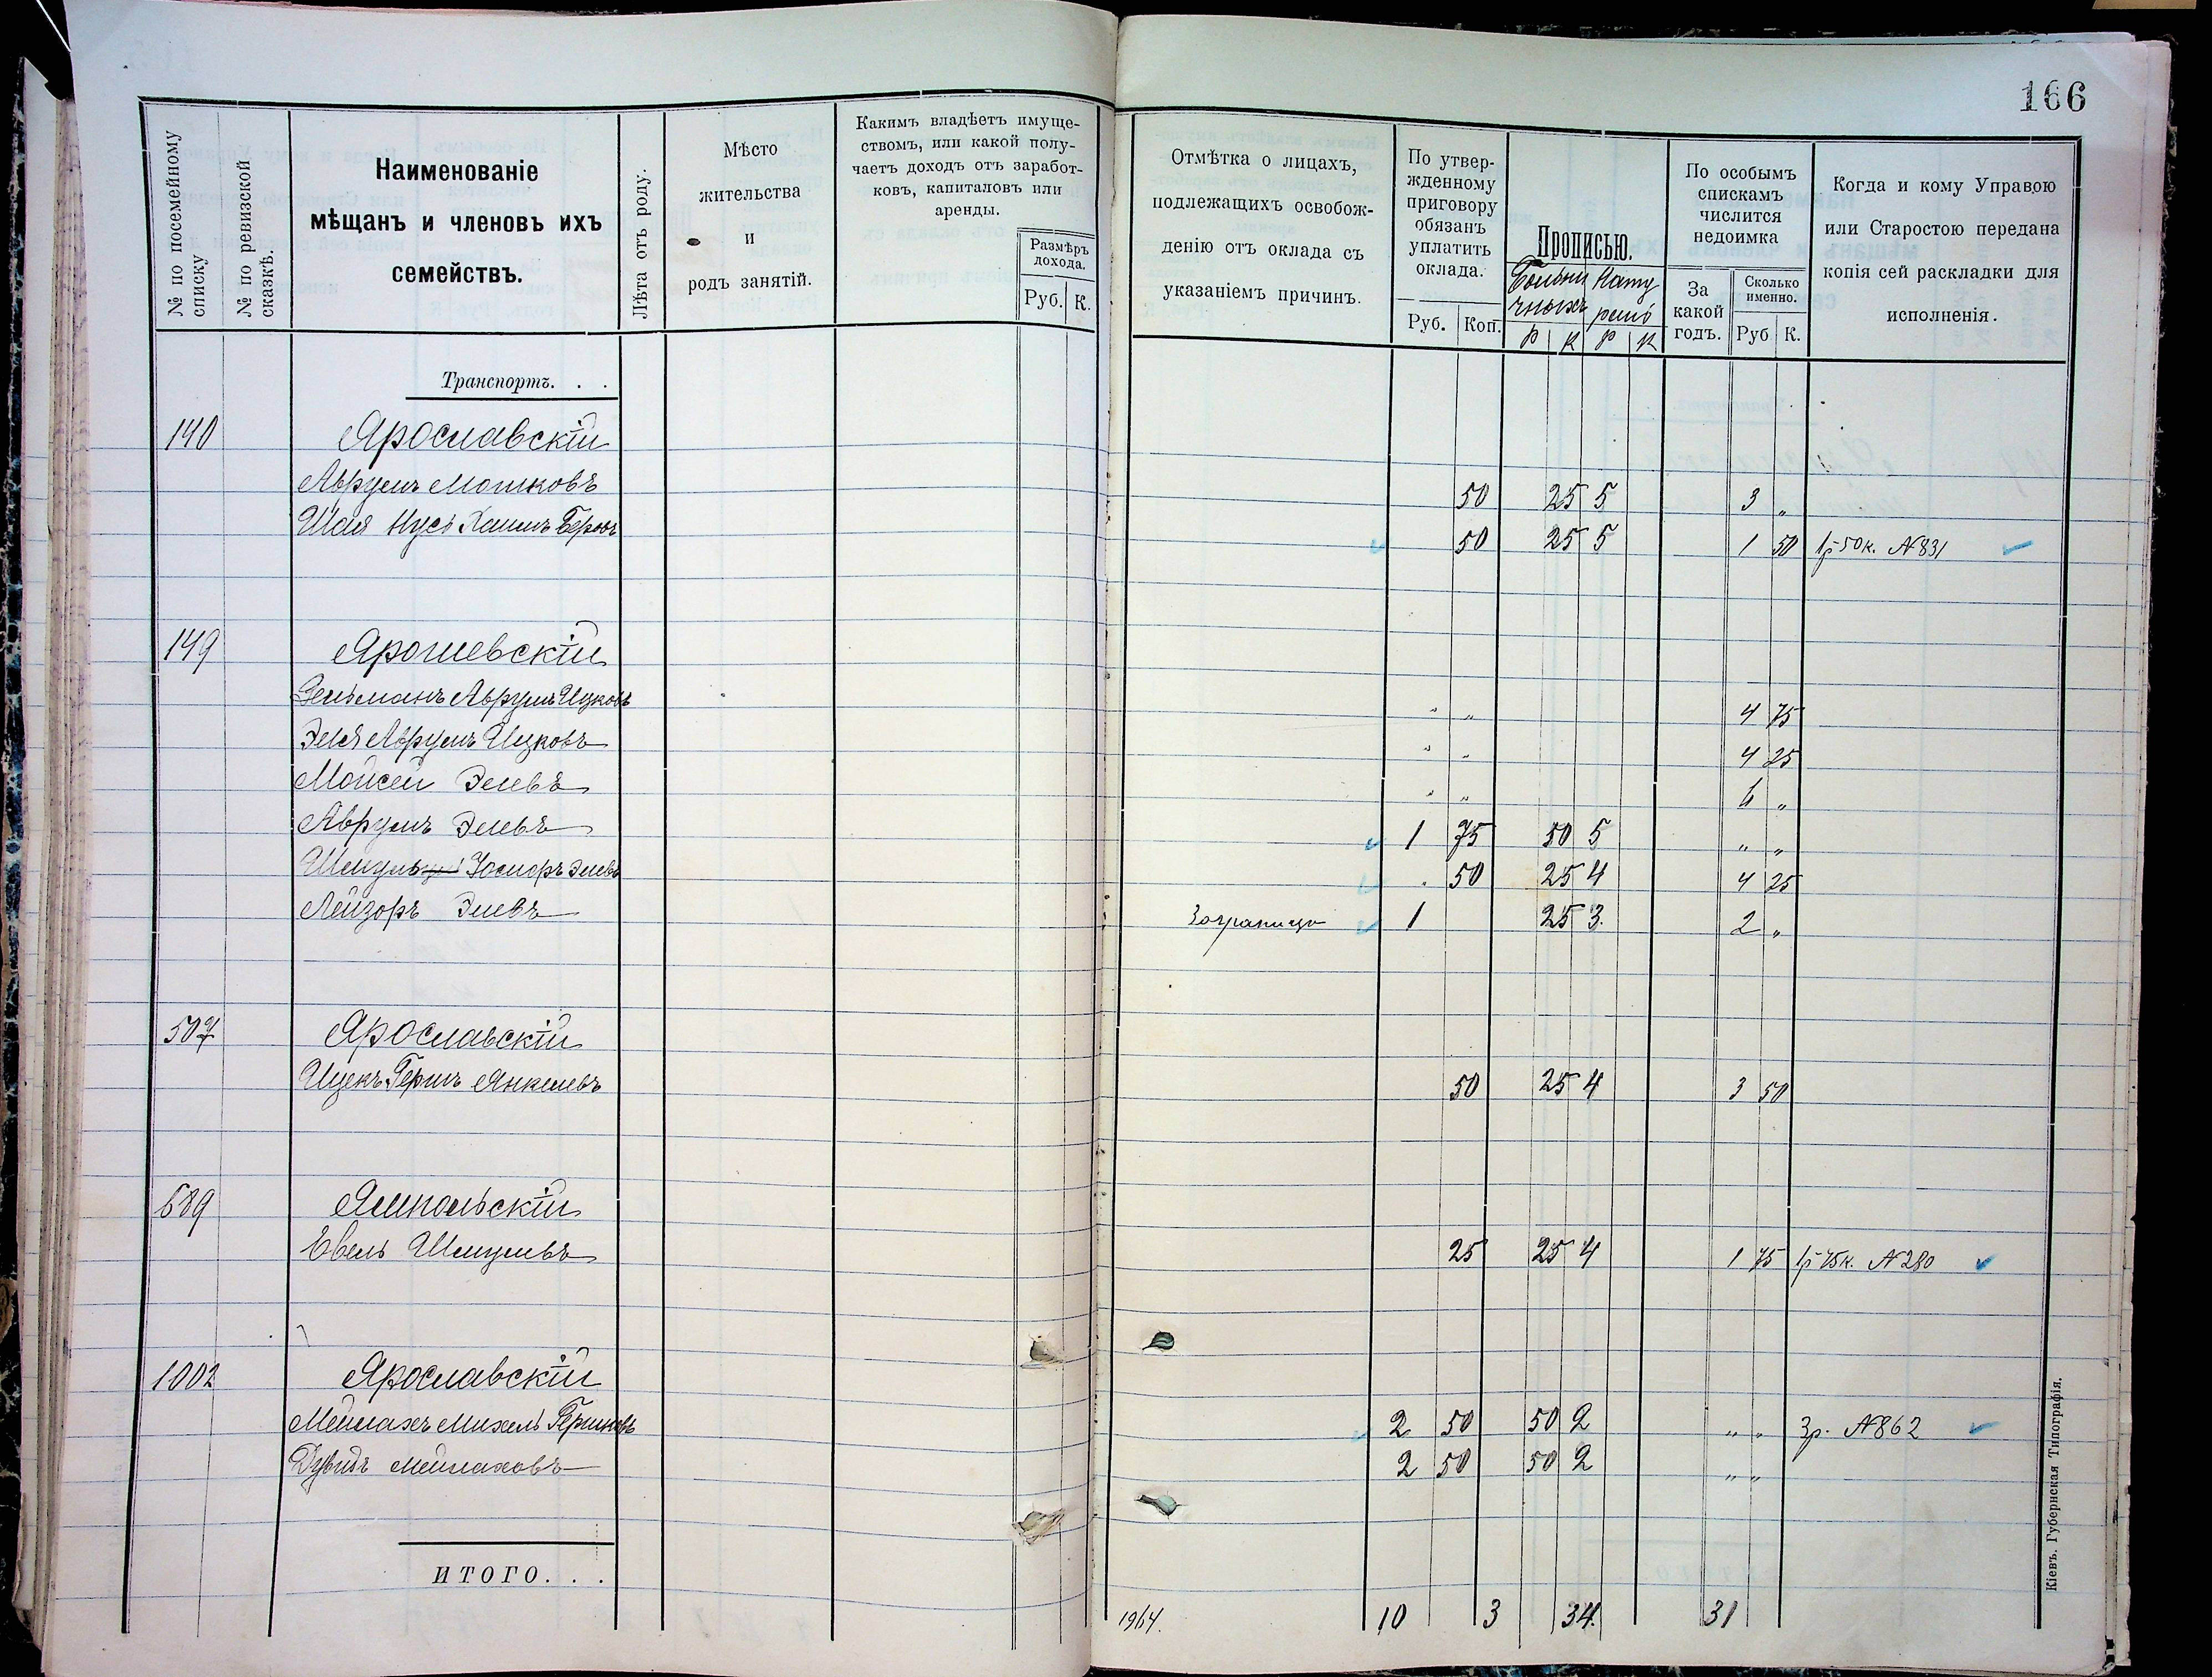 166
№ по посемейному списку
№ по ревизской сказкѣ.
Наименованіе
мѣщанъ и членовъ ихъ
семействъ.
Лѣта отъ роду.
Мѣсто
жительства
и
родъ занятій.
Какимъ владѣетъ имуще-
ствомъ, или какой полу-
чаетъ доходъ отъ заработ-
ковъ, капиталовъ или
аренды.
Размѣръ
дохода.
Руб. К.
Отмѣтка о лицахъ,
подлежащихъ освобож-
денію отъ оклада съ
указаніемъ причинъ.
По утвер-
жденному
приговору
обязанъ
уплатить
оклада.
Руб. Коп.
Прописью.
Р К Р К
По особымъ
спискамъ
числится
недоимка
За
какой
годъ.
Сколько
именно.
Руб К.
Когда и кому Управою
или Старостою передана
копія сей раскладки для
исполненія.
Транспортъ. . .
140 Ярославскій
Аврумъ Мошковъ 50 25 5 3 „
Шая Нусь Хаимъ Берковъ 50 25 5 1 50 1р 50к. №831
149 Ярошевскій
Зельманъ Аврумъ Ицковъ „ „ 4 75
Эля Аврумъ Ицковъ „ „ 4 25
Мойсей Элевъ „ „ 6 „
Аврумъ Элевъ 1 75 50 5 „ „
Шмуль Элевъ 50 25 4 4 25
Лейзоръ Элевъ Заграницу 1 25 3. 2 „
507 Ярославскій
Ицекъ Гершъ Янкелевъ 50 25 4 3 50
689 Ямпольскій
Евель Шмулевъ 25 25 4 1 75 1р 75к. №280
1002 Ярославскій
Мейлахъ Михель Гершковъ 2 50 50 2 „ „ 3р. №862
Дувидъ Мейлаховъ 2 50 50 2 „ „
ИТОГО. . .
1964. 10 3 34. 31
Кіевъ. Губернская Типографія.